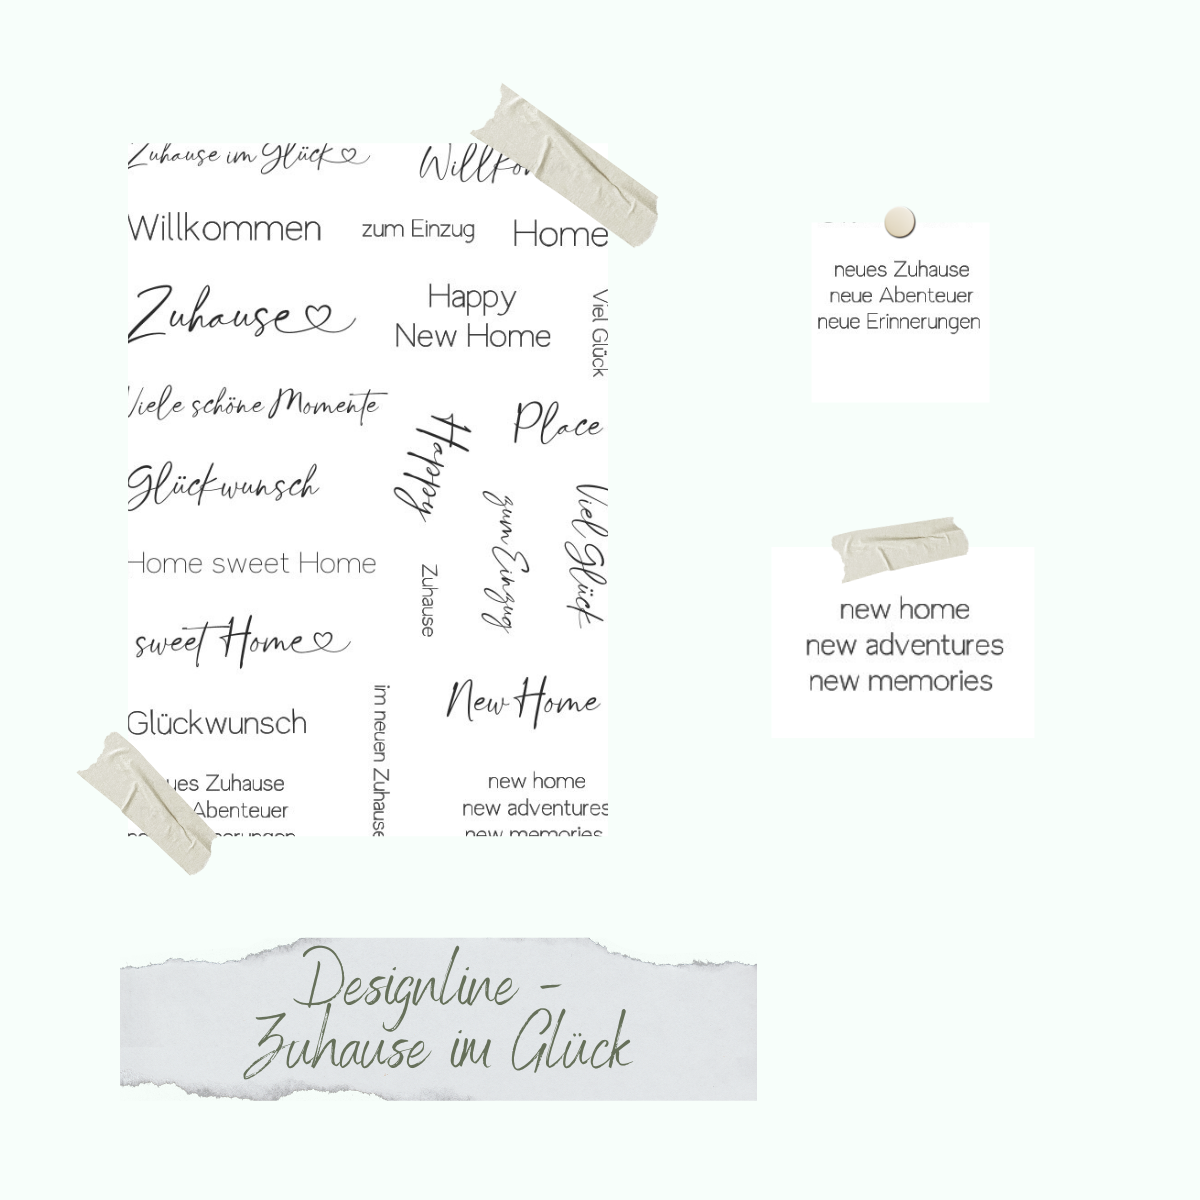 Zuhause im Glück
Willkommen
zum Einzug
Home
Zuhause
Happy
New Home
Viel Glück
Viele schöne Momente
Place
Happy
Glückwunsch
zum Einzug
Viel Glück
Home sweet Home
Zuhause
sweet Home
New Home
Glückwunsch
im neuen Zuhause
ues Zuhause
Abenteuer
new home
new adventures
new memories
neues Zuhause
neue Abenteuer
neue Erinnerungen
new home
new adventures
new memories
Designline -
Zuhause im Glück